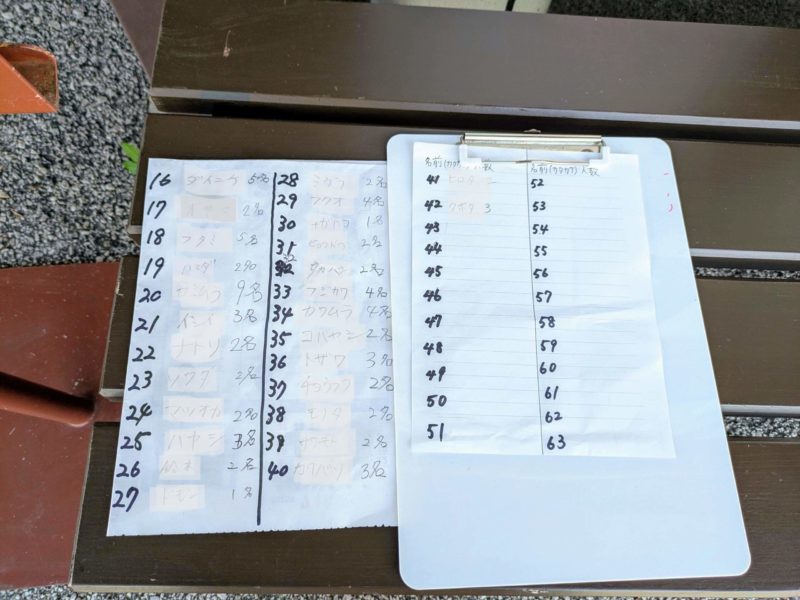 16 ダイニチ 5名
17 2名
18 フクミ 5名
19 2名
20 9名
21 イシイ 3名
22 ナトリ 2名
23 2名
24 2名
25 ハヤシ 3名
26 鈴木 2名
27 ドモン 1名
28 ミウラ 2名
29 フクオ 4名
30 1名
31 2名
32 2名
33 フジサワ 4名
34 カワムラ 4名
35 コバヤシ 2名
36 トザワ 3名
37 2名
38 モリタ 2名
39 サワモト 2名
40 3名
名前(カタカナ)人数
41
42 クボタ 3
43
44
45
46
47
48
49
50
51
名前(カタカナ)人数
52
53
54
55
56
57
58
59
60
61
62
63